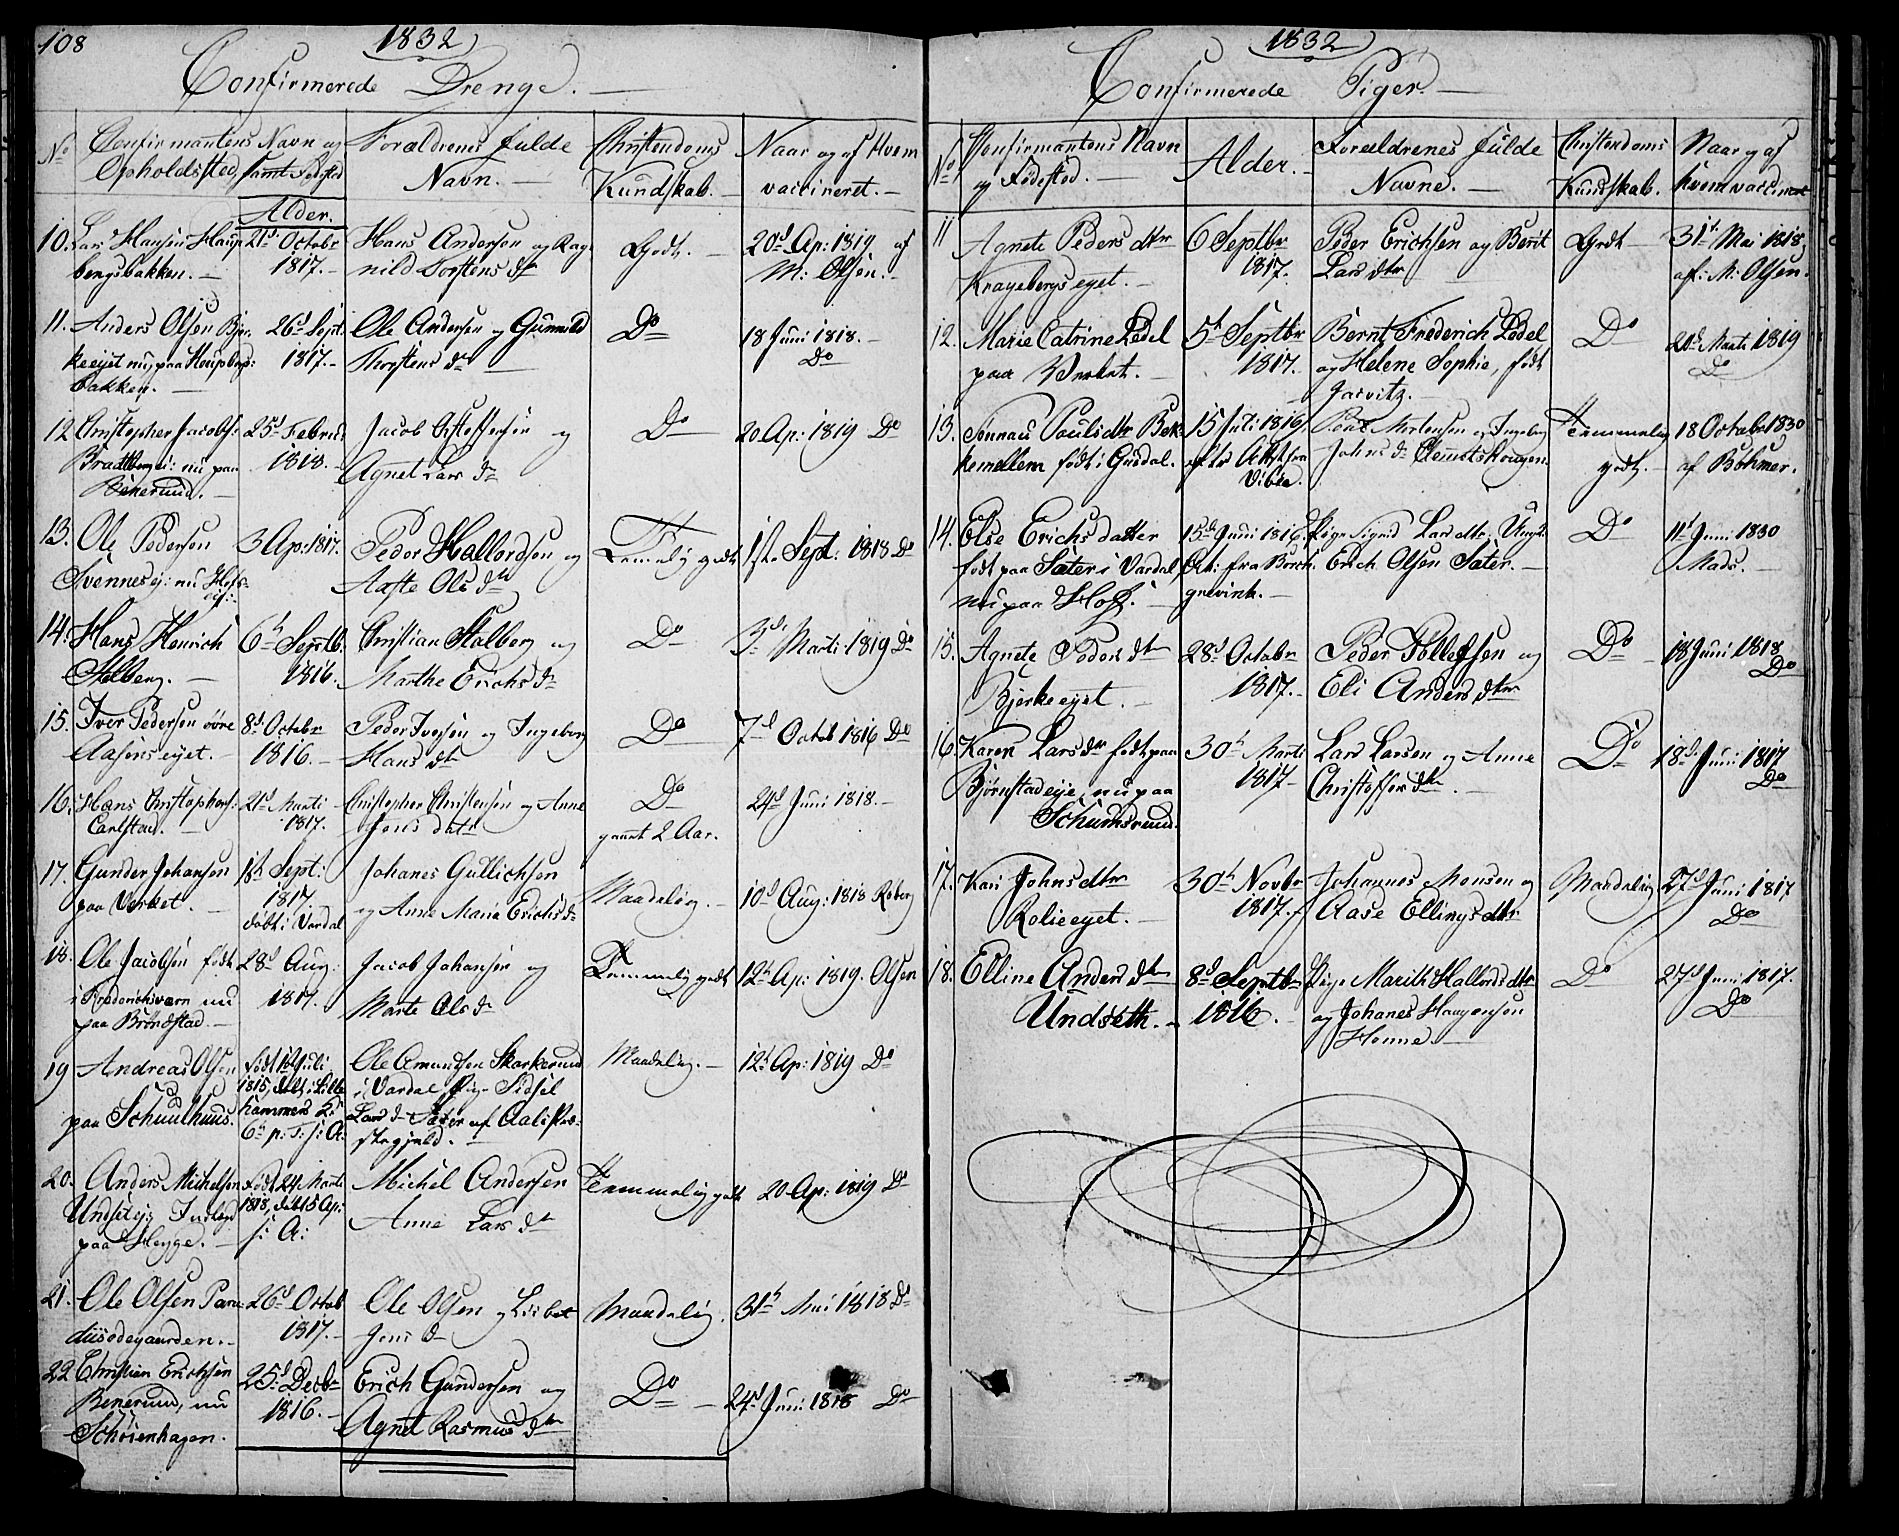 108
1832
Confirmerede Drenge.
No
Confirmantens Navn og
Opholdssted, samt Fødested
Alder.
Forældrenes fulde
Navn.
Christendoms
Kundskab.
Naar og af Hvem
vaccineret.
10. Lars Hansen
bergsbakken.
21d Octobr
1817.
Hans Andersen og Rag-
nild Torstens dr
Godt.
20d Ap: 1819 af
M: Olsen.
11. Anders Olsen Bjer-
keejet nu paa
bakken.
26d Sept:
1817.
Ole Andersen og Gunnild
Thorstens dr
Do
18 Juni 1818.
Do
12 Christopher Jacobs:
ei: nu paa
Benerud.
25d Febru:
1818.
Jacob Christoffersen og
Agnet Lars dr
Do
20 Ap: 1819 Do
13. Ole Pedersen
Svennes ej: nu Hofs-
ej:
3 Ap: 1817.
Peder Hallordsen og
Aaste Ols dr
Temmelig godt
1ste Sept: 1818 Do
14. Hans Henrich
Stalberg.
6te Septb.
1816.
Christian Stalberg og
Marthe Erichs dr
Do
3d Marti 1819 Do
15. Iver Pedersen øvre
Aasens eyet.
8d Octobr
1816.
Peder Iversen og Ingeborg
Hans dtr
Do
7d Octob 1816 Do
16. Hans Christophers:
Carlstad.
21d Marti
1817.
Christopher Christensen og Anne
Jens datr
Do
gaaet 2 Aar.
24d Juni 1818.
17. Gunder Johansen
paa Verket.
1ste Sept:
1817.
døbt i Vardal
Johanes Gullichsen
og Anne Maria Erichs dr
Maadelig.
10d Aug: 1818 Roberg
18. Ole Jacobsen født
i Frederichsværn nu
paa Brøndstad.
28d Aug:
1817.
Jacob Johansen og
Marte Ols dr
Temmelig godt
12te Ap: 1819. Olsen
19 Andreas Olsen
paa Schuulhuus.
født 10 Juli
1815, døbt i Lille
hammers K.
6te p: T: s: A:
Ole Amundsen Skarkerud
i Vardal Pige Sidsel
Lars dr Sæter af
stegjæld.
Maadelig.
12te Ap: 1819 Do
20. Anders Michelsen
paa Hygge.
Født 24 Marti
1818, døbt 5 Ap:
s: A:
Michel Andersen
Anne Lars dr
Temmelig godt
20 Ap: 1819 Do
21. Ole Olsen Para-
diisødegaarden.
26d Octob
1817.
Ole Olsen og Lisbet
Jens dr
Maadelig.
31te Mai 1818 Do
22 Christian Erichsen
Benerud, nu
Schøienhagen.
25d Decbr
1816.
Erich Gundersen og
Agnet Rasmus dtr
Do
24d Juni 1818 Do
1832
Confirmerede Piger.
No
Confirmantens Navn
og Fødested.
Alder.
Forældrenes fulde
Navne.
Christendoms
Kundskab.
Naar og af
hvem vaccineret
11 Agnete Peders dtr
Kragebergs eyet.
6 Septbr
1817.
Peder Erichsen og Berit
Lars dtr
Godt
31te Mai 1818
af: M: Olsen.
12. Marie Catrine Ledel
paa Verket.
5te Septbr
1817.
Bernt Frederich Ledel
og Helene Sophie, født
Jarvitz.
Do
21d Marti 1819
Do
13. Pauls dtr Bek-
kemellem født i Gusdal.
15 Juli 1816,
efter Attest fra
Paul Mortensen og Ingeborg
Johns dr
Temmelig
godt.
18 Octobr 1830
af Bøhmer.
14. Else Erichs datter
født paa Sæter i Vardal,
nu paa Hoff.
15de Juni 1816,
Att: fra Borch-
grevink.
Pige Sigrid Lars dtr: Ungk:
Erich Olsen Sæter.
Do
11te Juni 1830
15. Agnete Peders dtr
Bjerke eyet.
28d Octobr
1817.
Peder Tollefsen og
Eli Anders dtr
Do
18 Juni 1818
Do
16. Karen Lars dtr født paa
Bjørnstad eje, nu paa
Schumsrund.
30te Marti
1817
Lars Larsen og Anne
Christoffer dtr
Do
18d Juni 1817
Do
17. Kari Johns dtr
Rolie eyet.
30te Novbr
1817.
Johannes Monsen og
Aase Ellings dtr
Maadelig
27d Juni 1817
Do
18. Elline Anders dtr
Undseth.
8d Septbr
1816.
Pige Marith Hallords dtr
og Johanes Haagensen
Honne.
Do
27d Juni 1817.
Do